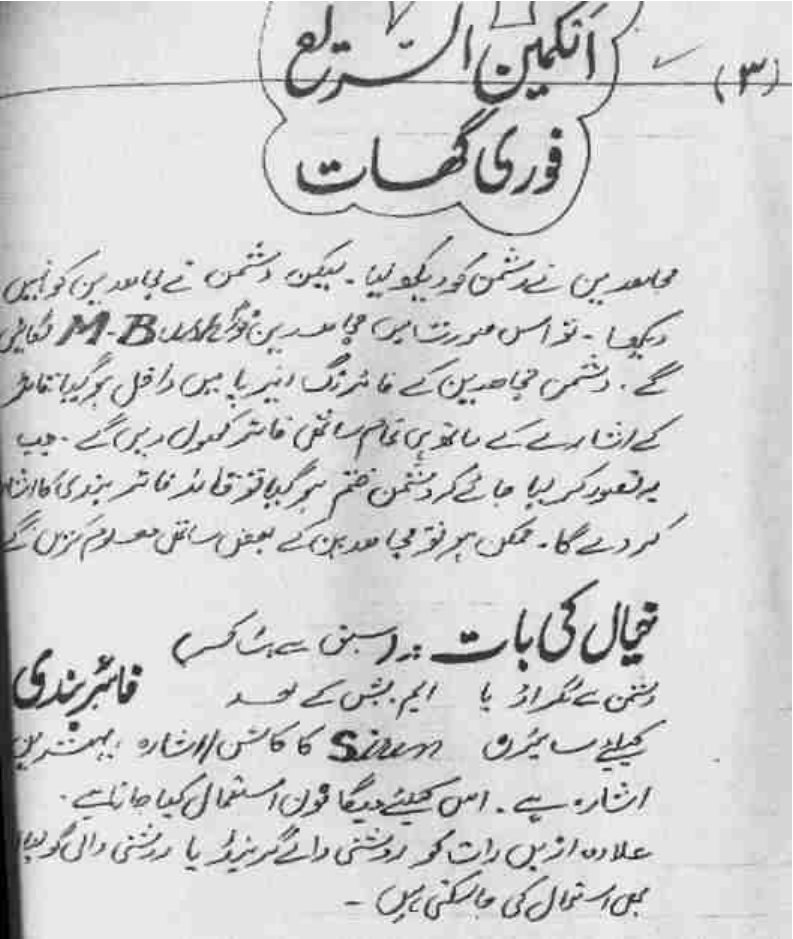 (۳)
انکمین السریع
فوری گھات
مجاہدین نے دشمن کو دیکھ لیا۔ لیکن دشمن نے مجاہدین کو نہیں
دیکھا۔ تو اس صورت میں مجاہدین فوراً M-Bush لگائیں
گے۔ دشمن مجاہدین کے فائرنگ ایریا میں داخل ہو گیا قائد
کے اشارے کے ساتھ ہی تمام ساتھی فائر کھول دیں گے۔ جب
یہ تصور کر لیا جائے کہ دشمن ختم ہو گیا تو قائد فائر بندی کا اشارہ
کر دے گا۔ ممکن ہو تو مجاہدین کے بعض ساتھی معلوم کریں گے
خیال کی بات :۔ (سبق سے ہٹ کر)
دشمن سے ٹکراؤ یا ایم بش کے بعد فائر بندی
کیلئے سائرن Siren کا کاشن/اشارہ بہترین
اشارہ ہے۔ اس کیلئے میگا فون استعمال کیا جاتا ہے۔
علاوہ ازیں رات کو روشنی والے گرنیڈ یا روشنی والی گولیاں
بھی استعمال کی جا سکتی ہیں ۔